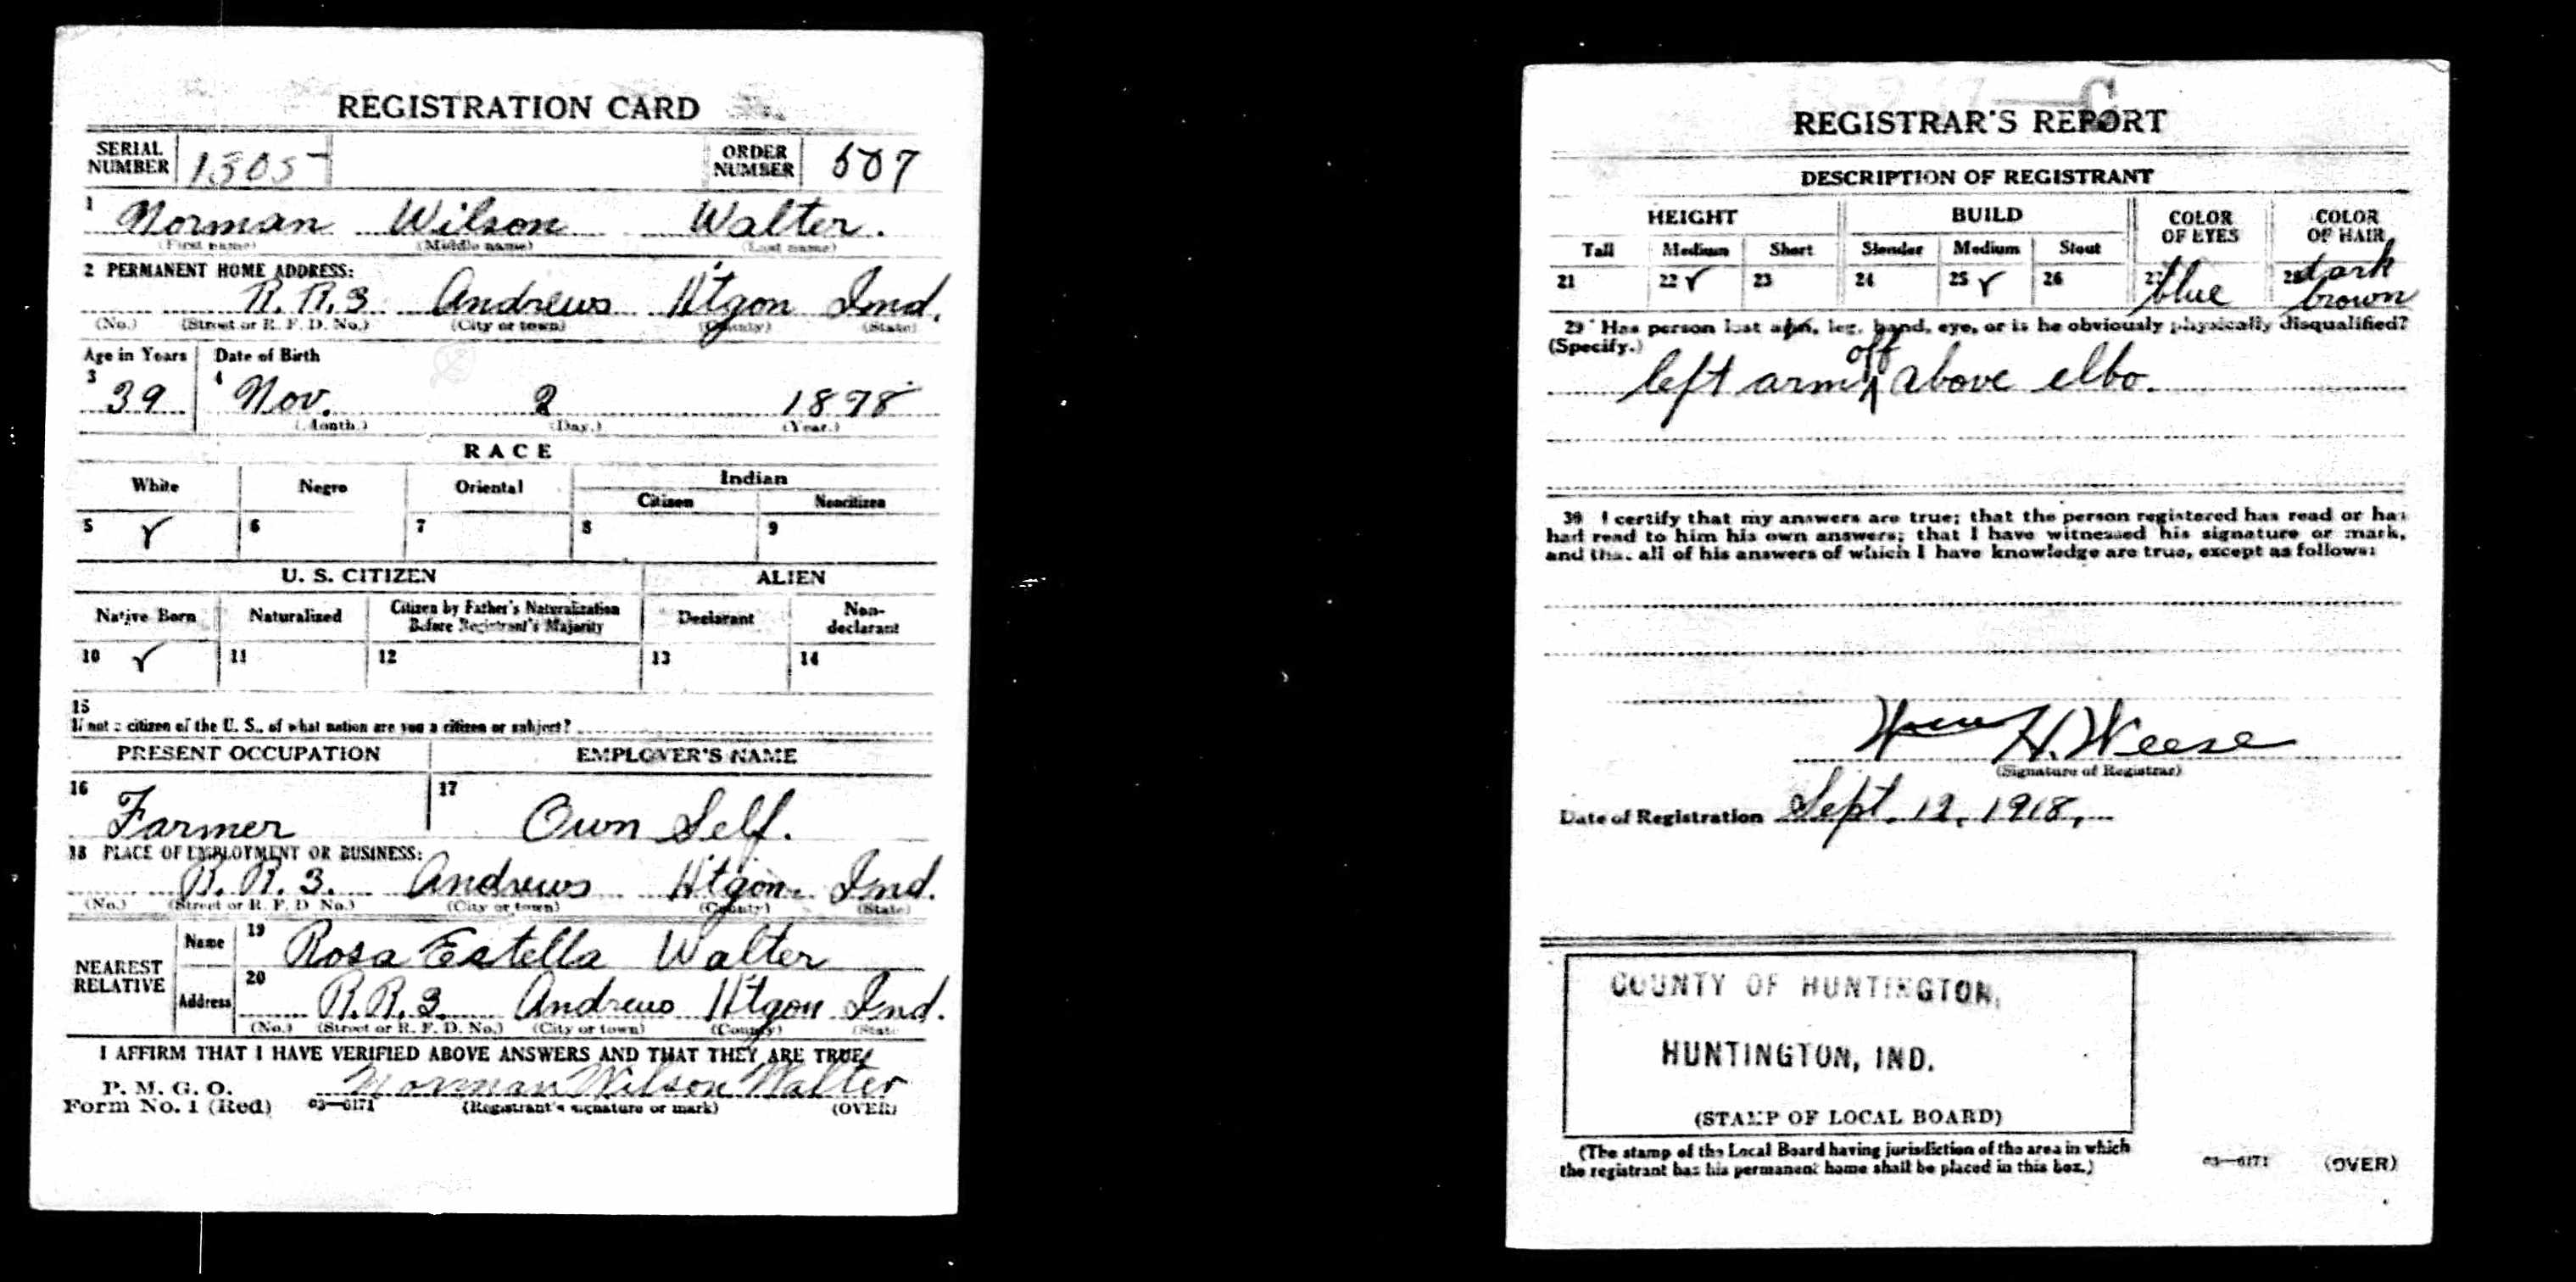 REGISTRATION CARD
SERIAL NUMBER 1305 ORDER NUMBER 507
1 Norman Wilson Walter.
(First name) (Middle name) (Last name)
2 PERMANENT HOME ADDRESS:
R. R. 3 Andrews H'tgon Ind.
(No.) (Street or R. F. D. No.) (City or town) (County) (State)
Age in Years Date of Birth
3 39 4 Nov. 2 1878
(Month.) (Day.) (Year.)
RACE
White Negro Oriental Indian
Citizen Noncitizen
5 ✓ 6 7 8 9
U. S. CITIZEN ALIEN
Native Born Naturalized Citizen by Father's Naturalization Before Registrant's Majority Declarant Non-declarant
10 ✓ 11 12 13 14
15
If not a citizen of the U. S., of what nation are you a citizen or subject?
PRESENT OCCUPATION EMPLOYER'S NAME
16 Farmer 17 Own Self.
18 PLACE OF EMPLOYMENT OR BUSINESS:
R. R. 3. Andrews H'tgon. Ind.
(No.) (Street or R. F. D. No.) (City or town) (County) (State)
NEAREST RELATIVE
Name 19 Rosa Estella Walter
Address 20 R. R. 3. Andrews H'tgon Ind.
(No.) (Street or R. F. D. No.) (City or town) (County) (State
I AFFIRM THAT I HAVE VERIFIED ABOVE ANSWERS AND THAT THEY ARE TRUE
P. M. G. O.
Form No. 1 (Red) 03—6171 Norman Wilson Walter
(Registrant's signature or mark) (OVER)
C
REGISTRAR'S REPORT
DESCRIPTION OF REGISTRANT
HEIGHT BUILD COLOR OF EYES COLOR OF HAIR
Tall Medium Short Slender Medium Stout
21 22 ✓ 23 24 25 ✓ 26 27 blue 28 dark brown
29 Has person lost arm, leg, hand, eye, or is he obviously physically disqualified?
(Specify.)
left arm off above elbo.
30 I certify that my answers are true; that the person registered has read or has
had read to him his own answers; that I have witnessed his signature or mark,
and that all of his answers of which I have knowledge are true, except as follows:
H. Weese
(Signature of Registrar)
Date of Registration Sept. 12, 1918,
COUNTY OF HUNTINGTON,
HUNTINGTON, IND.
(STAMP OF LOCAL BOARD)
(The stamp of the Local Board having jurisdiction of the area in which
the registrant has his permanent home shall be placed in this box.)
03—6171 (OVER)